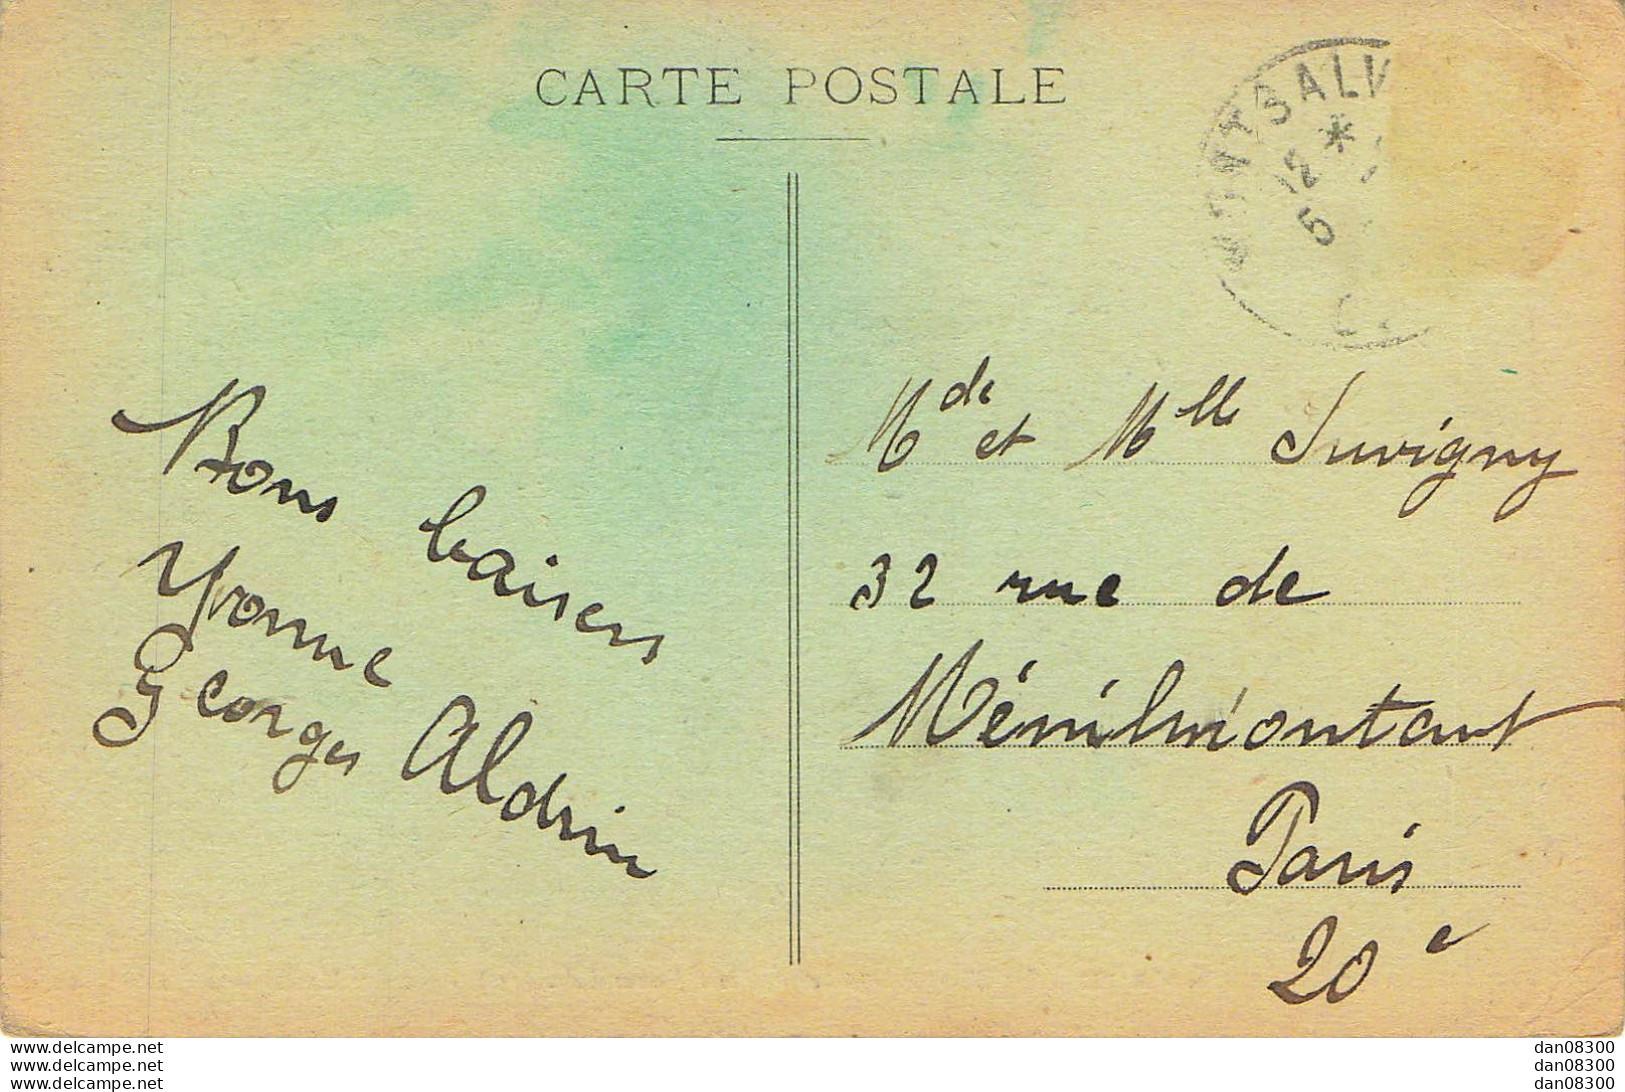 CARTE POSTALE
MONTSALV
*
12
5
Bons baisers
Yvonne
Georges Aldrin
Mde et Mlle Juvigny
32 rue de
Ménilmontant
Paris
20e
www.delcampe.net
www.delcampe.net
www.delcampe.net
dan08300
dan08300
dan08300